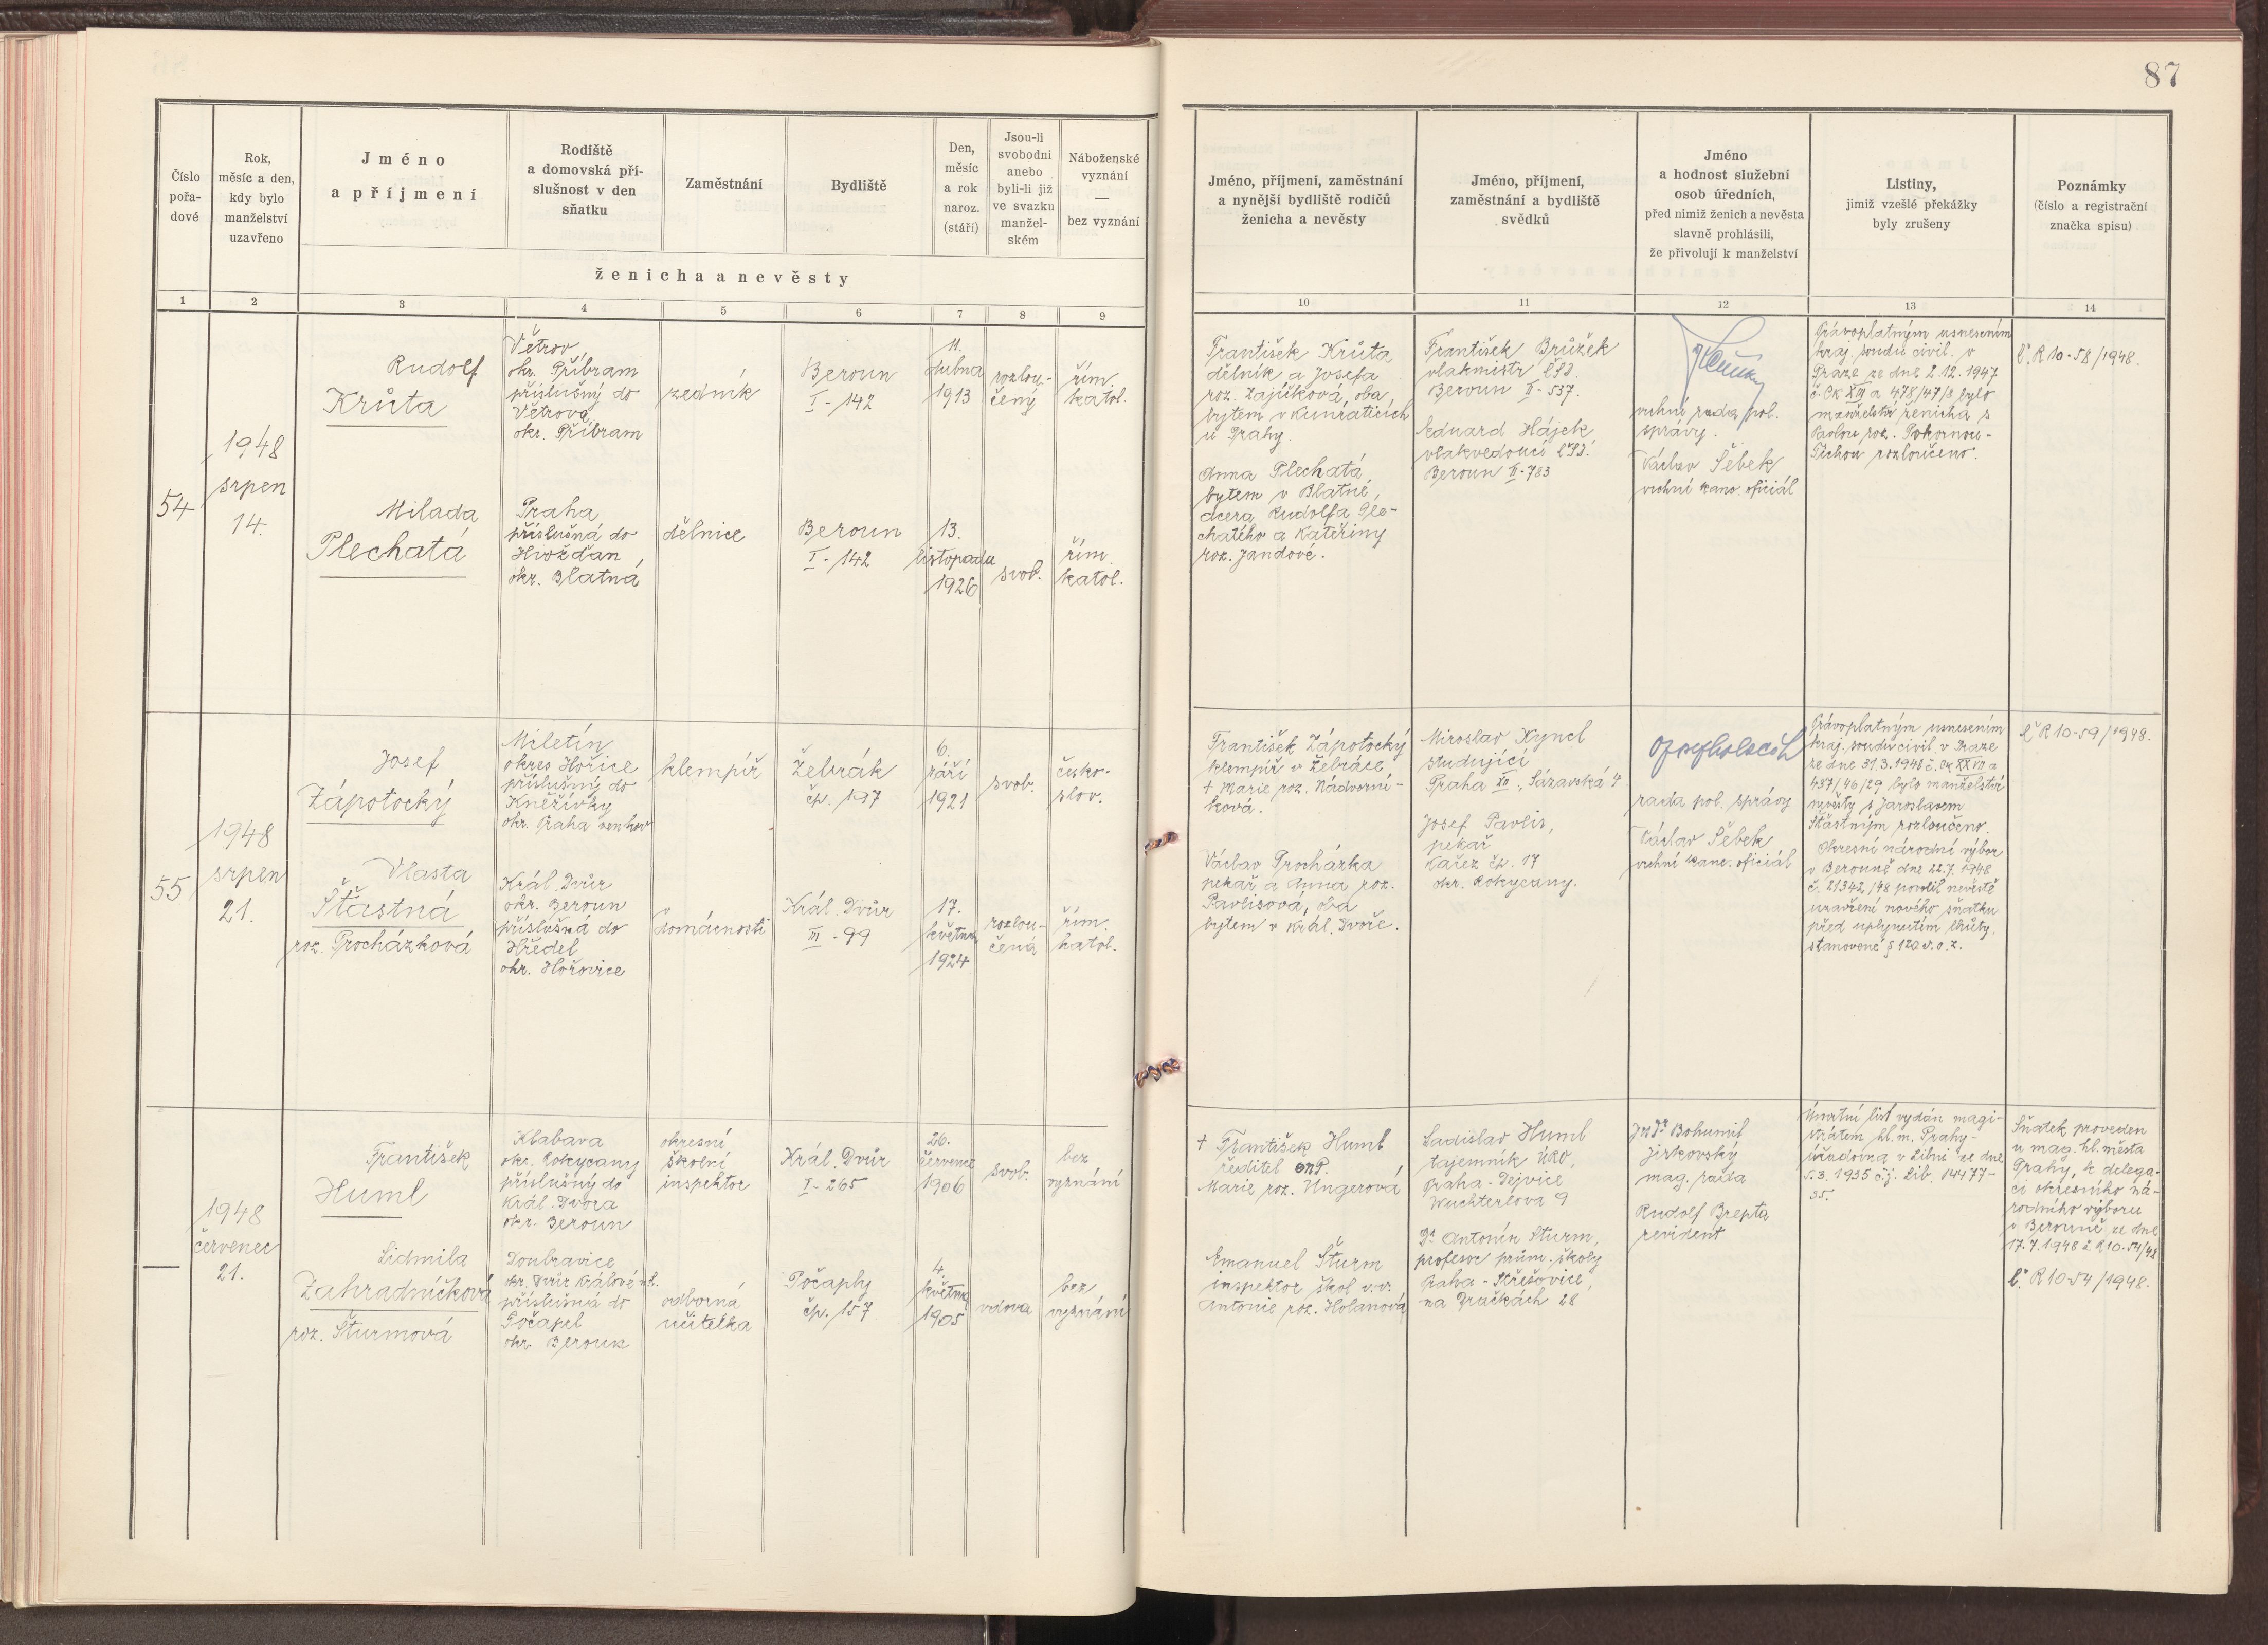 87
Číslo
pořa-
dové
Rok,
měsíc a den,
kdy bylo
manželství
uzavřeno
Jméno
a příjmení
Rodiště
a domovská pří-
slušnost v den
sňatku
Zaměstnání
Bydliště
Den,
měsíc
a rok
naroz.
(stáří)
Jsou-li
svobodni
anebo
byli-li již
ve svazku
manžel-
ském
Náboženské
vyznání
—
bez vyznání
ženicha a nevěsty
1 2 3 4 5 6 7 8 9
Jméno, příjmení, zaměstnání
a nynější bydliště rodičů
ženicha a nevěsty
Jméno, příjmení,
zaměstnání a bydliště
svědků
Jméno
a hodnost služební
osob úředních,
před nimiž ženich a nevěsta
slavně prohlásili,
že přivolují k manželství
Listiny,
jimiž vzešlé překážky
byly zrušeny
Poznámky
(číslo a registrační
značka spisu)
10 11 12 13 14
54
1948
srpen
14.
Rudolf
Krůta
Větrov
okr. Příbram
příslušný do
Větrova
okr. Příbram
zedník
Beroun
I - 142
11.
dubna
1913
rozlou-
čený
řím.
katol.
Milada
Plechatá
Praha
příslušná do
Hvožďan
okr. Blatná
dělnice
Beroun
I - 142
13.
listopadu
1926
svob.
řím.
katol.
František Krůta
dělník a Josefa
roz. Zajíčková, oba
bytem v Kunraticích
u Prahy.
Anna Plechatá
bytem v Blatné,
dcera Rudolfa Ple-
chatého a Kateřiny
roz. Jandové.
František Brůžek
vlakmistr ČSD.
Beroun II - 537.
Eduard Hájek
vlakvedoucí ČSD.
Beroun II - 783
vrchní rada pol.
správy.
Václav Šebek
vrchní kanc. oficiál
Právoplatným usnesením
kraj. soudu civil. v
Praze ze dne 2.12.1947
č. Ck XVI a 478/47/8 bylo
manželství ženicha s
Pavlou roz. Pokornou-
Píchou rozloučeno.
č. R 10-58/1948.
55
1948
srpen
21.
Josef
Zápotocký
Miletín
okres Hořice
příslušný do
Kněžívky
okr. Praha venkov
klempíř
Žebrák
čp. 197
6.
září
1921
svob.
česko-
slov.
Vlasta
Šťastná
roz. Procházková
Král. Dvůr
okr. Beroun
příslušná do
Hředel
okr. Hořovice
domácnosti
Král. Dvůr
III - 99
17.
května
1924
rozlou-
čená
řím.
katol.
František Zápotocký
klempíř v Žebráce
† Marie roz. Nádvorní-
ková.
Václav Procházka
pekař a Anna roz.
Pavlisová, oba
bytem v Král. Dvoře.
Miroslav Kyncl
studující
Praha XII, Sázavská 4
Josef Pavlis,
pekař
Kařez čp. 17
okr. Rokycany.
rada pol. správy
Václav Šebek
vrchní kanc. oficiál
Právoplatným usnesením
kraj. soudu civil. v Praze
ze dne 31.3.1948 č. Ck XXVII a
437/46/29 bylo manželství
nevěsty s Jaroslavem
Šťastným rozloučeno.
Okresní národní výbor
v Berouně dne 22.7.1948
č. 21342/48 povolil nevěstě
uzavření nového sňatku
před uplynutím lhůty
stanovené § 120 o. z.
č. R 10-59/1948.
—
1948
červenec
21.
František
Huml
Klabava
okr. Rokycany
příslušný do
Král. Dvora
okr. Beroun
okresní
školní
inspektor
Král. Dvůr
I - 265
26.
července
1906
svob.
bez
vyznání
Lidmila
Zahradníčková
roz. Šturmová
Doubravice
okr. Dvůr Králové n.L.
příslušná do
Počapel
okr. Beroun
odborná
učitelka
Počaply
čp. 157
4.
května
1905
vdova
bez
vyznání
† František Huml
ředitel
Marie roz. Ungerová
Emanuel Šturm
inspektor škol v.v.
Antonie roz. Holanová
Ladislav Huml
tajemník ÚRO,
Praha - Dejvice
Wuchterlova 9
Dr. Antonín Šturm,
profesor prům. školy
Praha - Střešovice,
na Dračkách 28
JUDr. Bohumil
Jirkovský
mag. rada
Rudolf Brepta
revident
Úmrtní list vydán magi-
strátem hl. m. Prahy-
úřadovna v Libni ze dne
5.3.1935 č.j. Lib. 04477-
35.
Sňatek proveden
u mag. hl. města
Prahy, z delega-
ci okresního ná-
rodního výboru
v Berouně ze dne
17.7.1948 č. R 10-54/48
č. R 10-54/1948.